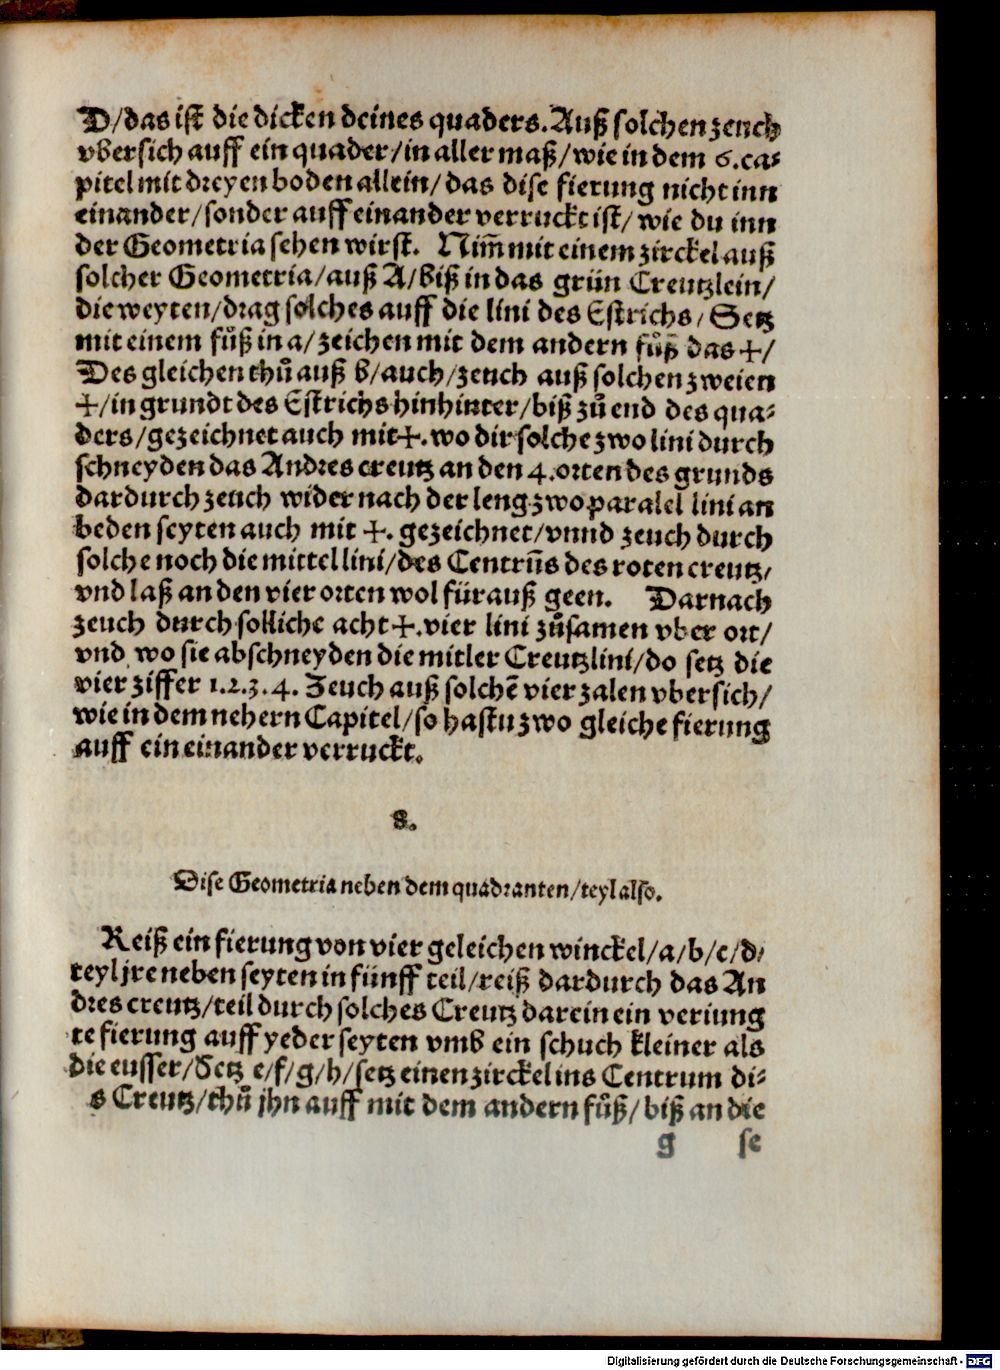 D/das ist die dicken deines quaders. Auß solchen zeuch
vbersich auff ein quader/in aller maß/wie in dem 6.ca⸗
pitel mit dreyen boden allein/das dise fierung nicht inn
einander/sonder auff einander verruckt ist/wie du inn
der Geometria sehen wirst. Nim̄ mit einem zirckel auß
solcher Geometria/auß A/biß in das grün Creutzlein/
die weyten/drag solches auff die lini des Estrichs/Setz
mit einem fůß in a/zeichen mit dem andern fůß das +/
Des gleichen thů auß b/auch/zeuch auß solchen zweien
+/in grundt des Estrichs hinhinter/biß zů end des qua⸗
ders/gezeichnet auch mit +. wo dir solche zwo lini durch
schneyden das Andres creutz an den 4. orten des grunds
dardurch zeuch wider nach der leng zwo paralel lini an
beden seyten auch mit +. gezeichnet/vnnd zeuch durch
solche noch die mittel lini/des Centrūs des roten creutz/
vnd laß an den vier orten wol fürauß geen. Darnach
zeuch durch solliche acht +. vier lini zůsamen vber ort/
vnd wo sie abschneyden die mitler Creutzlini/do setz die
vier ziffer 1.2.3.4. Zeuch auß solchē vier zalen vbersich/
wie in dem nehern Capitel/so hastu zwo gleiche fierung
auff ein einander verruckt.
8.
Dise Geometria neben dem quadranten/teyl also.
Reiß ein fierung von vier geleichen winckel/a/b/c/d/
teyl jre neben seyten in fünff teil/reiß dardurch das An
dres creutz/teil durch solches Creutz darein ein veriung
te fierung auff yeder seyten vmb ein schuch kleiner als
die eusser/Setz e/f/g/h/setz einen zirckel ins Centrum di⸗
s Creutz/thů jhn auff mit dem andern fůß/biß an die
g se
Digitalisierung gefördert durch die Deutsche Forschungsgemeinschaft - DFG